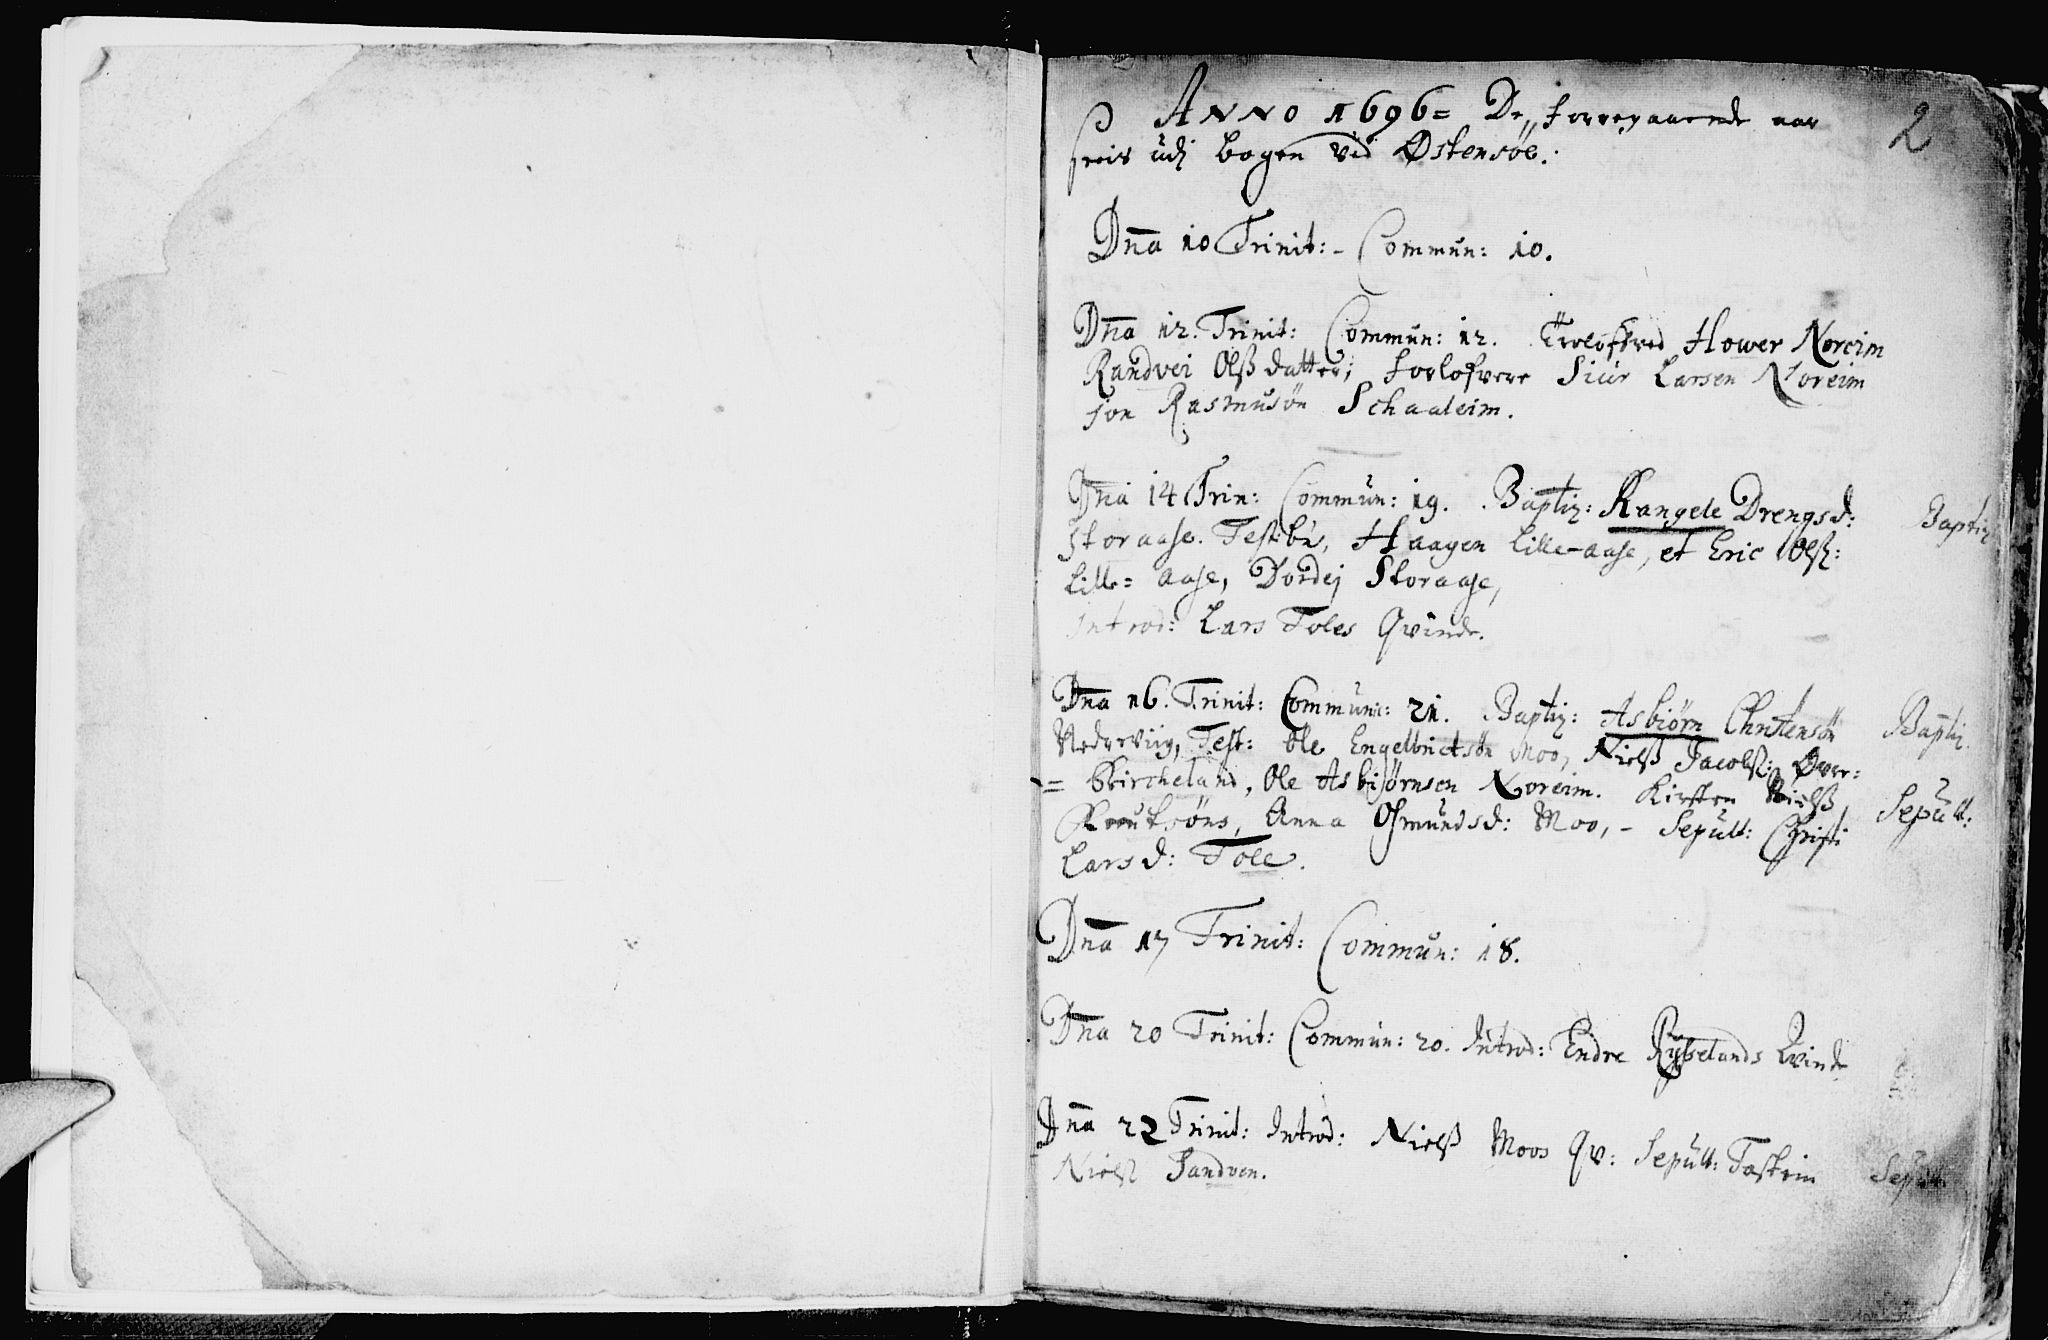 2
ANNO 1696 = De forregaaende aar
seis udj bogen ved Østensøe.
Dn̄a 10 Trinit: - Commun: 10.
Dn̄a 12. Trinit: Commun: 12. Trolofved Hower Noreim
Randvei Olß datter; Forlofvere Siur Larsen Noreim
Jon Rasmusøn Schaaleim.
Dn̄a 14 Trin: Commun: 19. Baptiz: Rangele Drengsd: Baptiz
Storaase. Testib, Haagen Lille-aase, et Eric Olß:
Lille= aase, Dordej Storaase,
Introd: Lars Toles Qvinde.
Dn̄a 16. Trinit: Commun: 21. Baptiz: Asbiørn Christensøn Baptiz
Test: Ole Engelbrictsøn Moo, Nielß Jacobß: Øvre=
= Bircheland, Ole Asbiørnsen Noreim. Kirsten Nielß Sepult:
Knutsøns, Anna Osmundsd: Moo, - Sepult: Christi
Larsd: Tole.
Dn̄a 17 Trinit: Commun: 18.
Dn̄a 20 Trinit: Commun: 20. Introd: Endre Rykelands Qvinde
Dn̄a 22 Trinit: Introd: Nielß Moos Qv: Sepult: Torstein Sepult
Nielß Sandven.